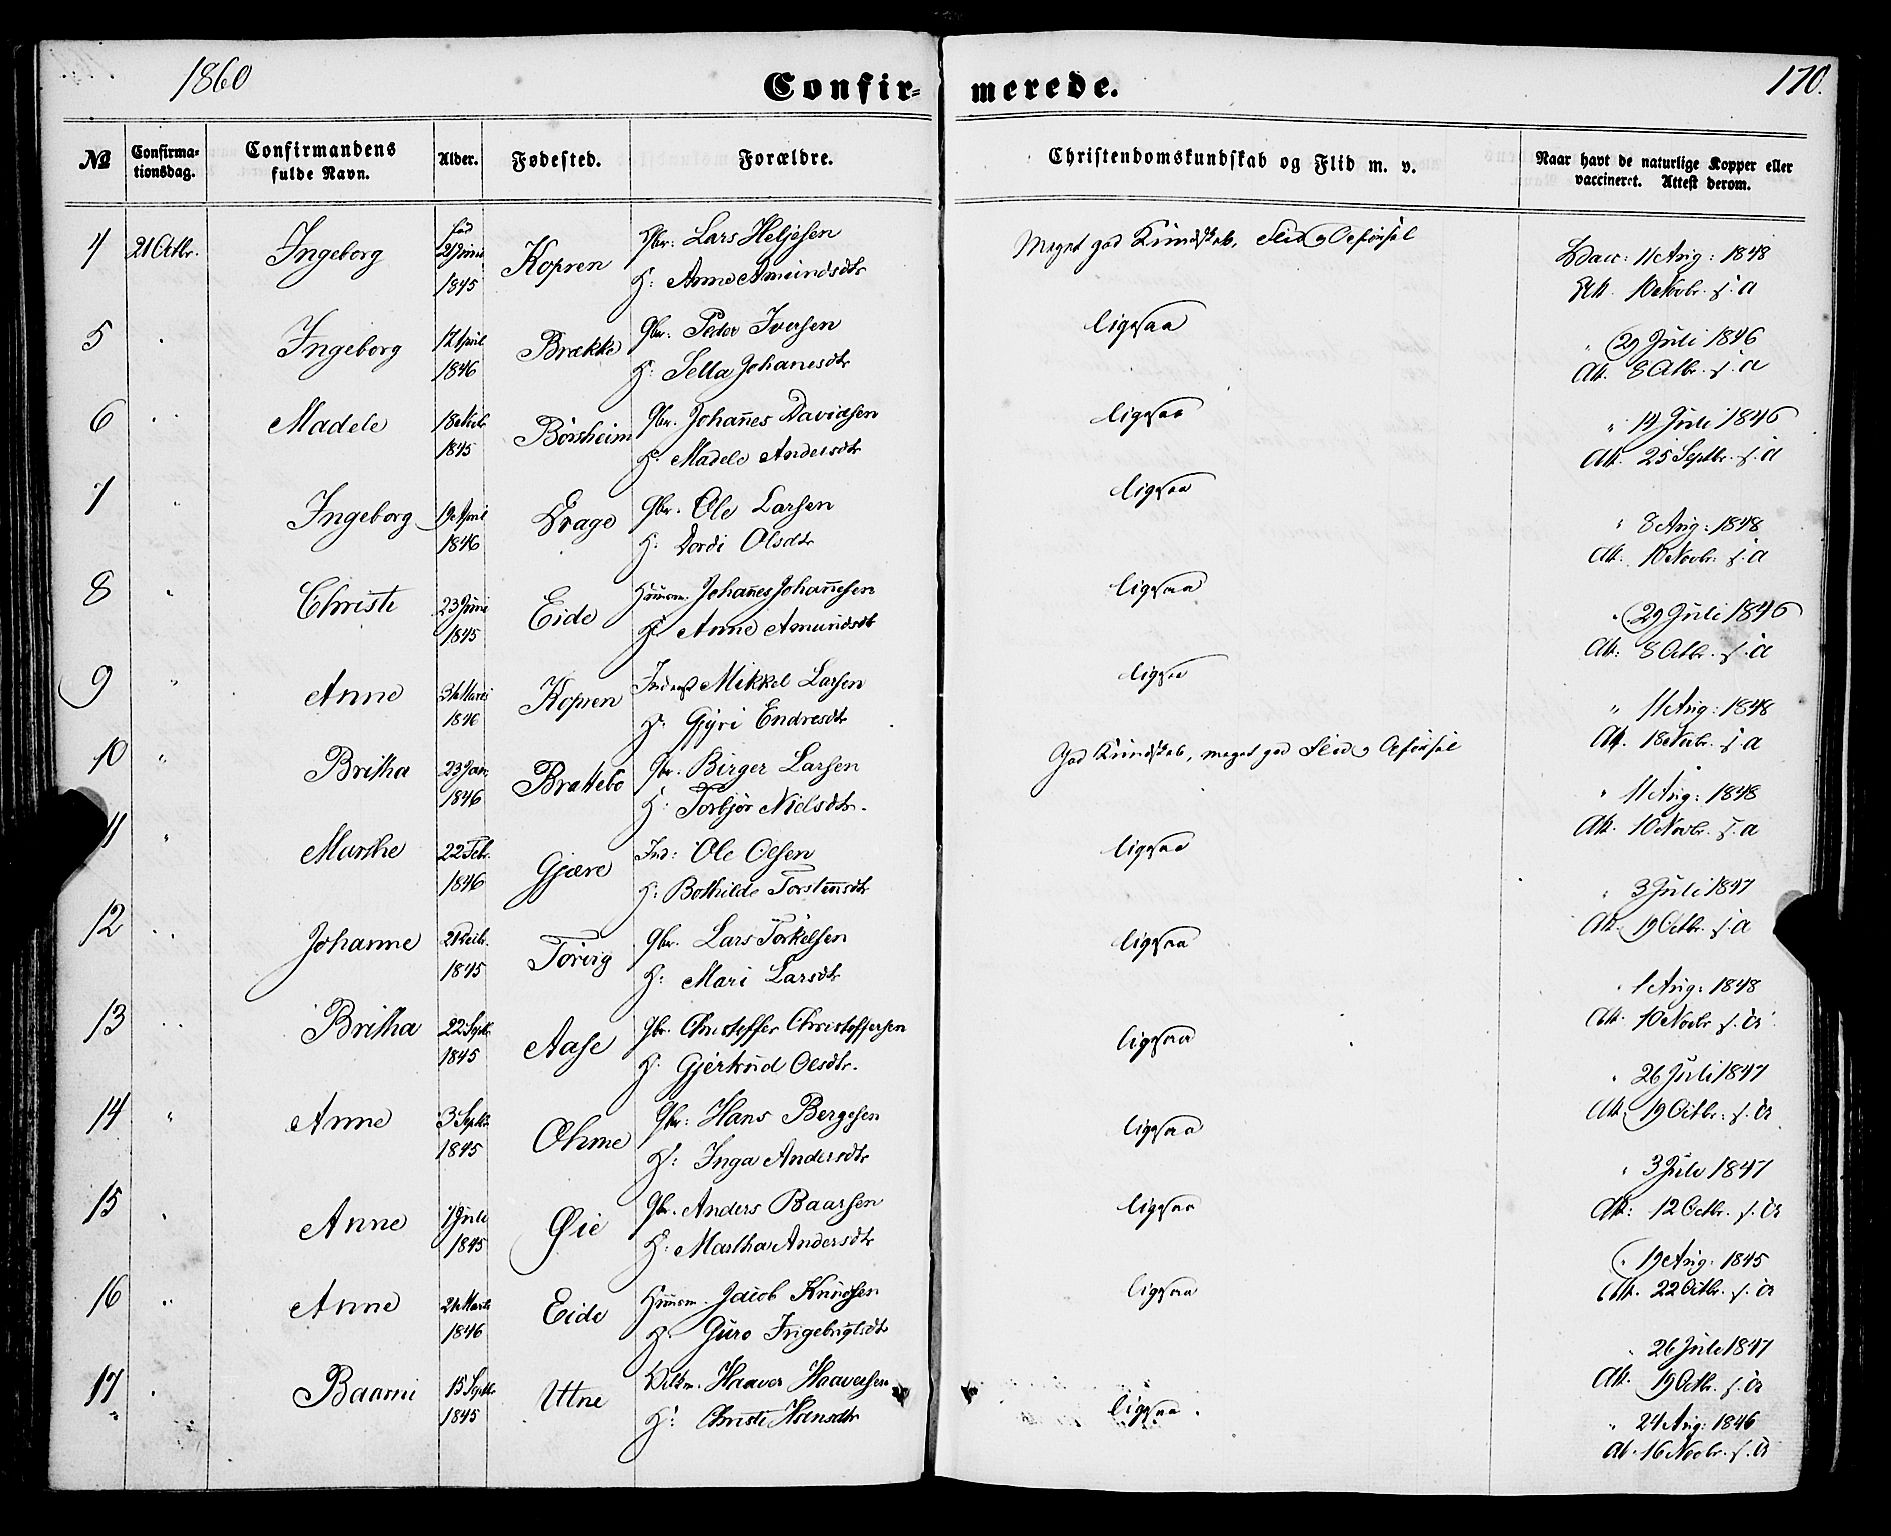 1860 Confirmerede. 170.
№ Confirmationsdag. Confirmandens fulde Navn. Alder. Fødested. Forældre. Christendomskundskab og Flid m. v. Naar havt de naturlige Kopper eller vaccineret. Attest derom.
4 21 Octbr. Ingeborg 1845 Kopren Gbr: Lars Heljesen Meget god Kundskab, Flid og Opførsel Vacc: 11 Aug: 1848
H: Anna Amundsdtr Att. 10 Novbr. s. a
5 Ingeborg 12 April 1846 Brække Gbr. Peder Iversen ligesaa " 29 Juli 1846
H: Sella Johanesdtr Att. 8 Octbr. s. a
6 Madele 1845 Børsheim Gbr. Johannes Davidsen ligesaa " 14 Juli 1846
H: Madele Andersdtr Att. 25 Septbr. s. a
7 Ingeborg 19 April 1846 Gbr. Ole Larsen ligesaa " 8 Aug: 1848
H: Dordi Olsdtr Att. 10 Novbr. s. a
8 " Christi 23 Juni 1845 Eide Huusm. Johannes Johannesen ligesaa " 29 Juli 1846
H: Anna Amundsdtr Att: 8 Octbr. s. a
9 " Anne 1846 Kopren Mikkel Larsen ligesaa " 11 Aug: 1848
H: Gyri Endresdtr Att. s. a
10 " Britha 23 Jan. 1846 Brattebø Gbr. Birger Larsen God Kundskab, meget god Flid og Opførsel " 11 Aug: 1848
H: Torbjør Nielsdtr. Att. 10 Novbr. s. a
11 " Marthe 22 Febr. 1846 Gjære Ind: Ole Olsen ligesaa " 3 Juli 1847
H: Bothilde Torstensdtr Att. 19 Octbr. s. a
12 " Johanne 1845 Tørvig Gbr. Lars Torkelsen ligesaa " 1 Aug: 1848
H: Mari Larsdtr Att. 10 Novbr s. a
13 " Britha 22 Septbr. 1845 Aase Gbr. Christoffer Christoffersen ligesaa " 26 Juli 1847
H. Gjertrud Olsdtr. Att. 19 Octbr: s. a
14 " Anne 3 Septbr 1845 Ohme Gbr: Hans Bergesen ligesaa " 3 Juli 1847
H: Inga Andersdtr Att: 12 Octbr. s. a
15 Anne 1 Juli 1845 Øie Gbr. Anders Baarsen ligesaa " 19 Aug. 1845
H: Martha Andersdtr Att. 22 Octbr. s. a
16 " Anne 1846 Eide Huusm. Jacob Knudsen ligesaa " 26 Juli 1847
H. Guro Ingebrigtsdtr Att. 19 Octbr. s. a
17 Baarni 15 Septbr 1845 Utne Haaver Haaversen ligesaa. " 24 Aug: 1846
H: Christi Hansdtr Att. 16 Novbr. s. a